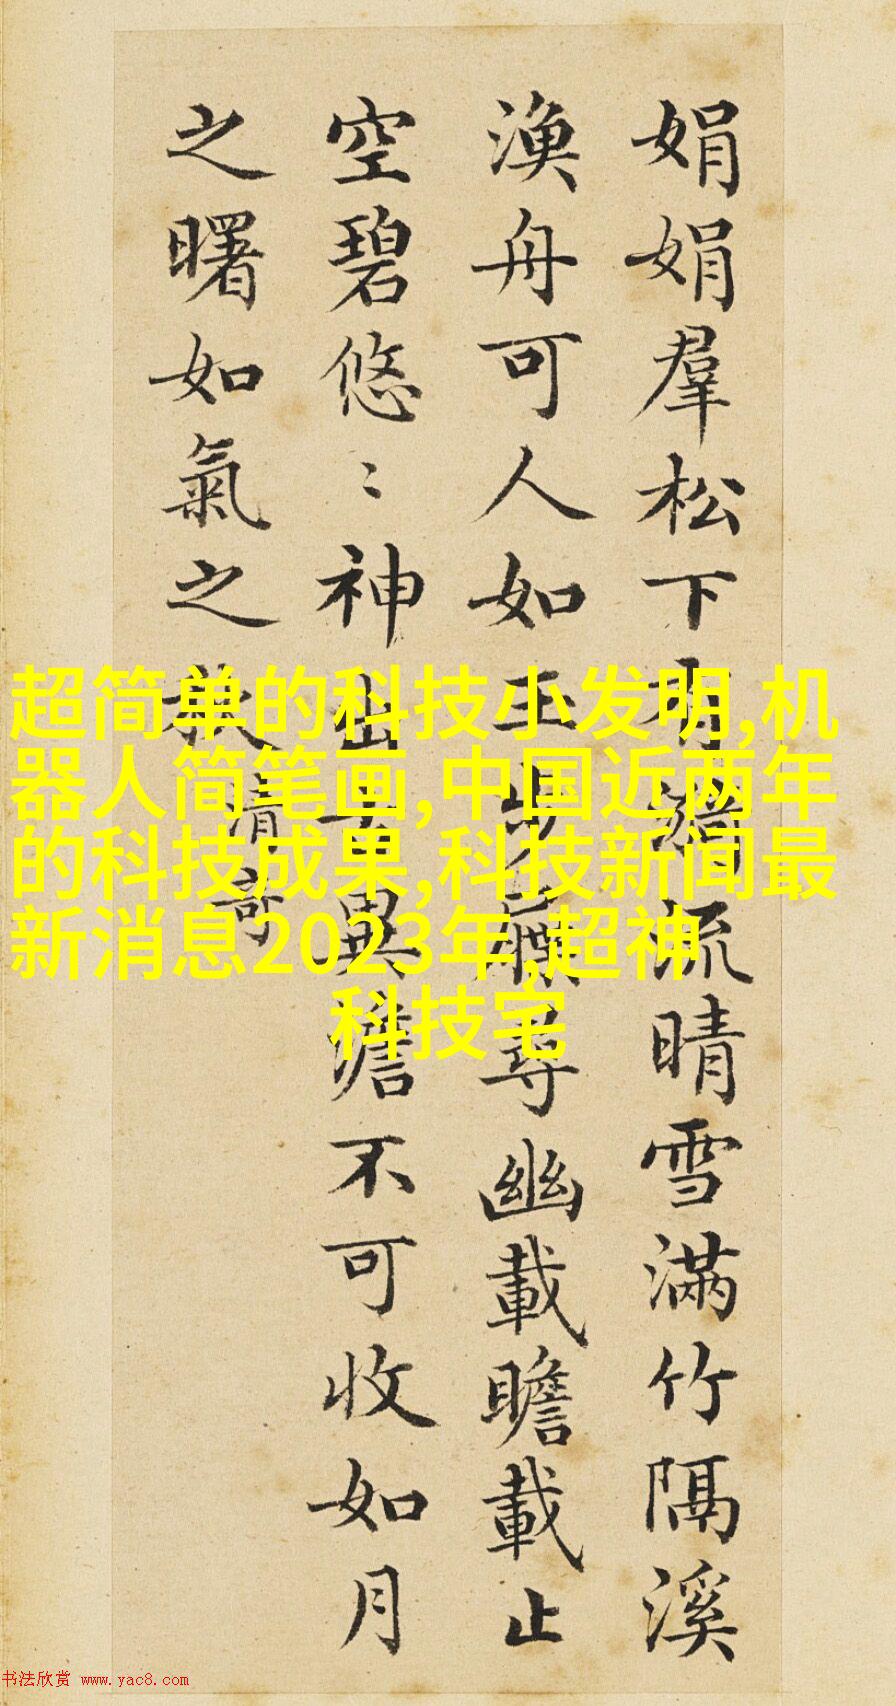 娟娟羣松下有漪流晴雪滿竹隔溪
漁舟可人如玉步屧尋幽載瞻載止
空碧悠〻神出古異澹不可收如月
之曙如氣之秋清奇
超简单的科技小发明,机
器人简笔画,中国近两年
的科技成果,科技新闻最
新消息2023年,超神
科技宅
书法欣赏 www.yac8.com